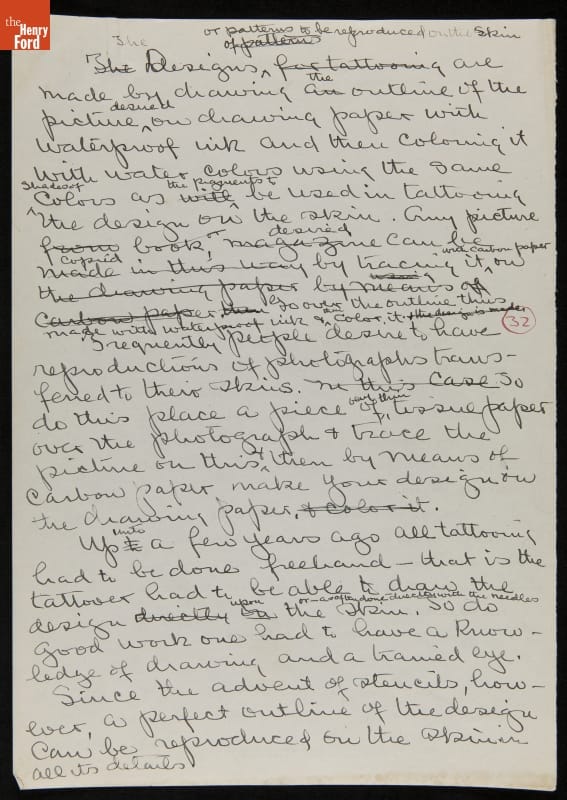 the
Henry
Ford
The
or patterns to be reproduced on the skin
of patterns
The Designs, for tattooing are
made by drawing an the outline of the
desired
picture, on drawing paper with
waterproof ink and then coloring it
with water colors using the same
shades of the pigments to
colors as will be used in tattooing
the design on the skin. Any picture
from book, or magazine desired can be
copied with carbon paper
made in this way by tracing it, on
the drawing paper by means of using
carbon paper, then go over the outline thus
made with waterproof ink & color it. the design is made
32
Frequently people desire to have
reproductions of photographs trans-
ferred to their skins. In this case So
do this place a piece of, very thin tissue paper
over the photograph & trace the
picture on this & then by means of
carbon paper make your design on
the drawing paper. & color it.
Up unto a few years ago all tattooing
had to be done freehand – that is the
tattooer had to be able to draw the
or – as often done directly with the needles
design directly on upon the skin. So do
good work one had to have a know-
ledge of drawing and a trained eye.
Since the advent of stencils, how-
ever, a perfect outline of the design
can be reproduced on the skin in
all its details